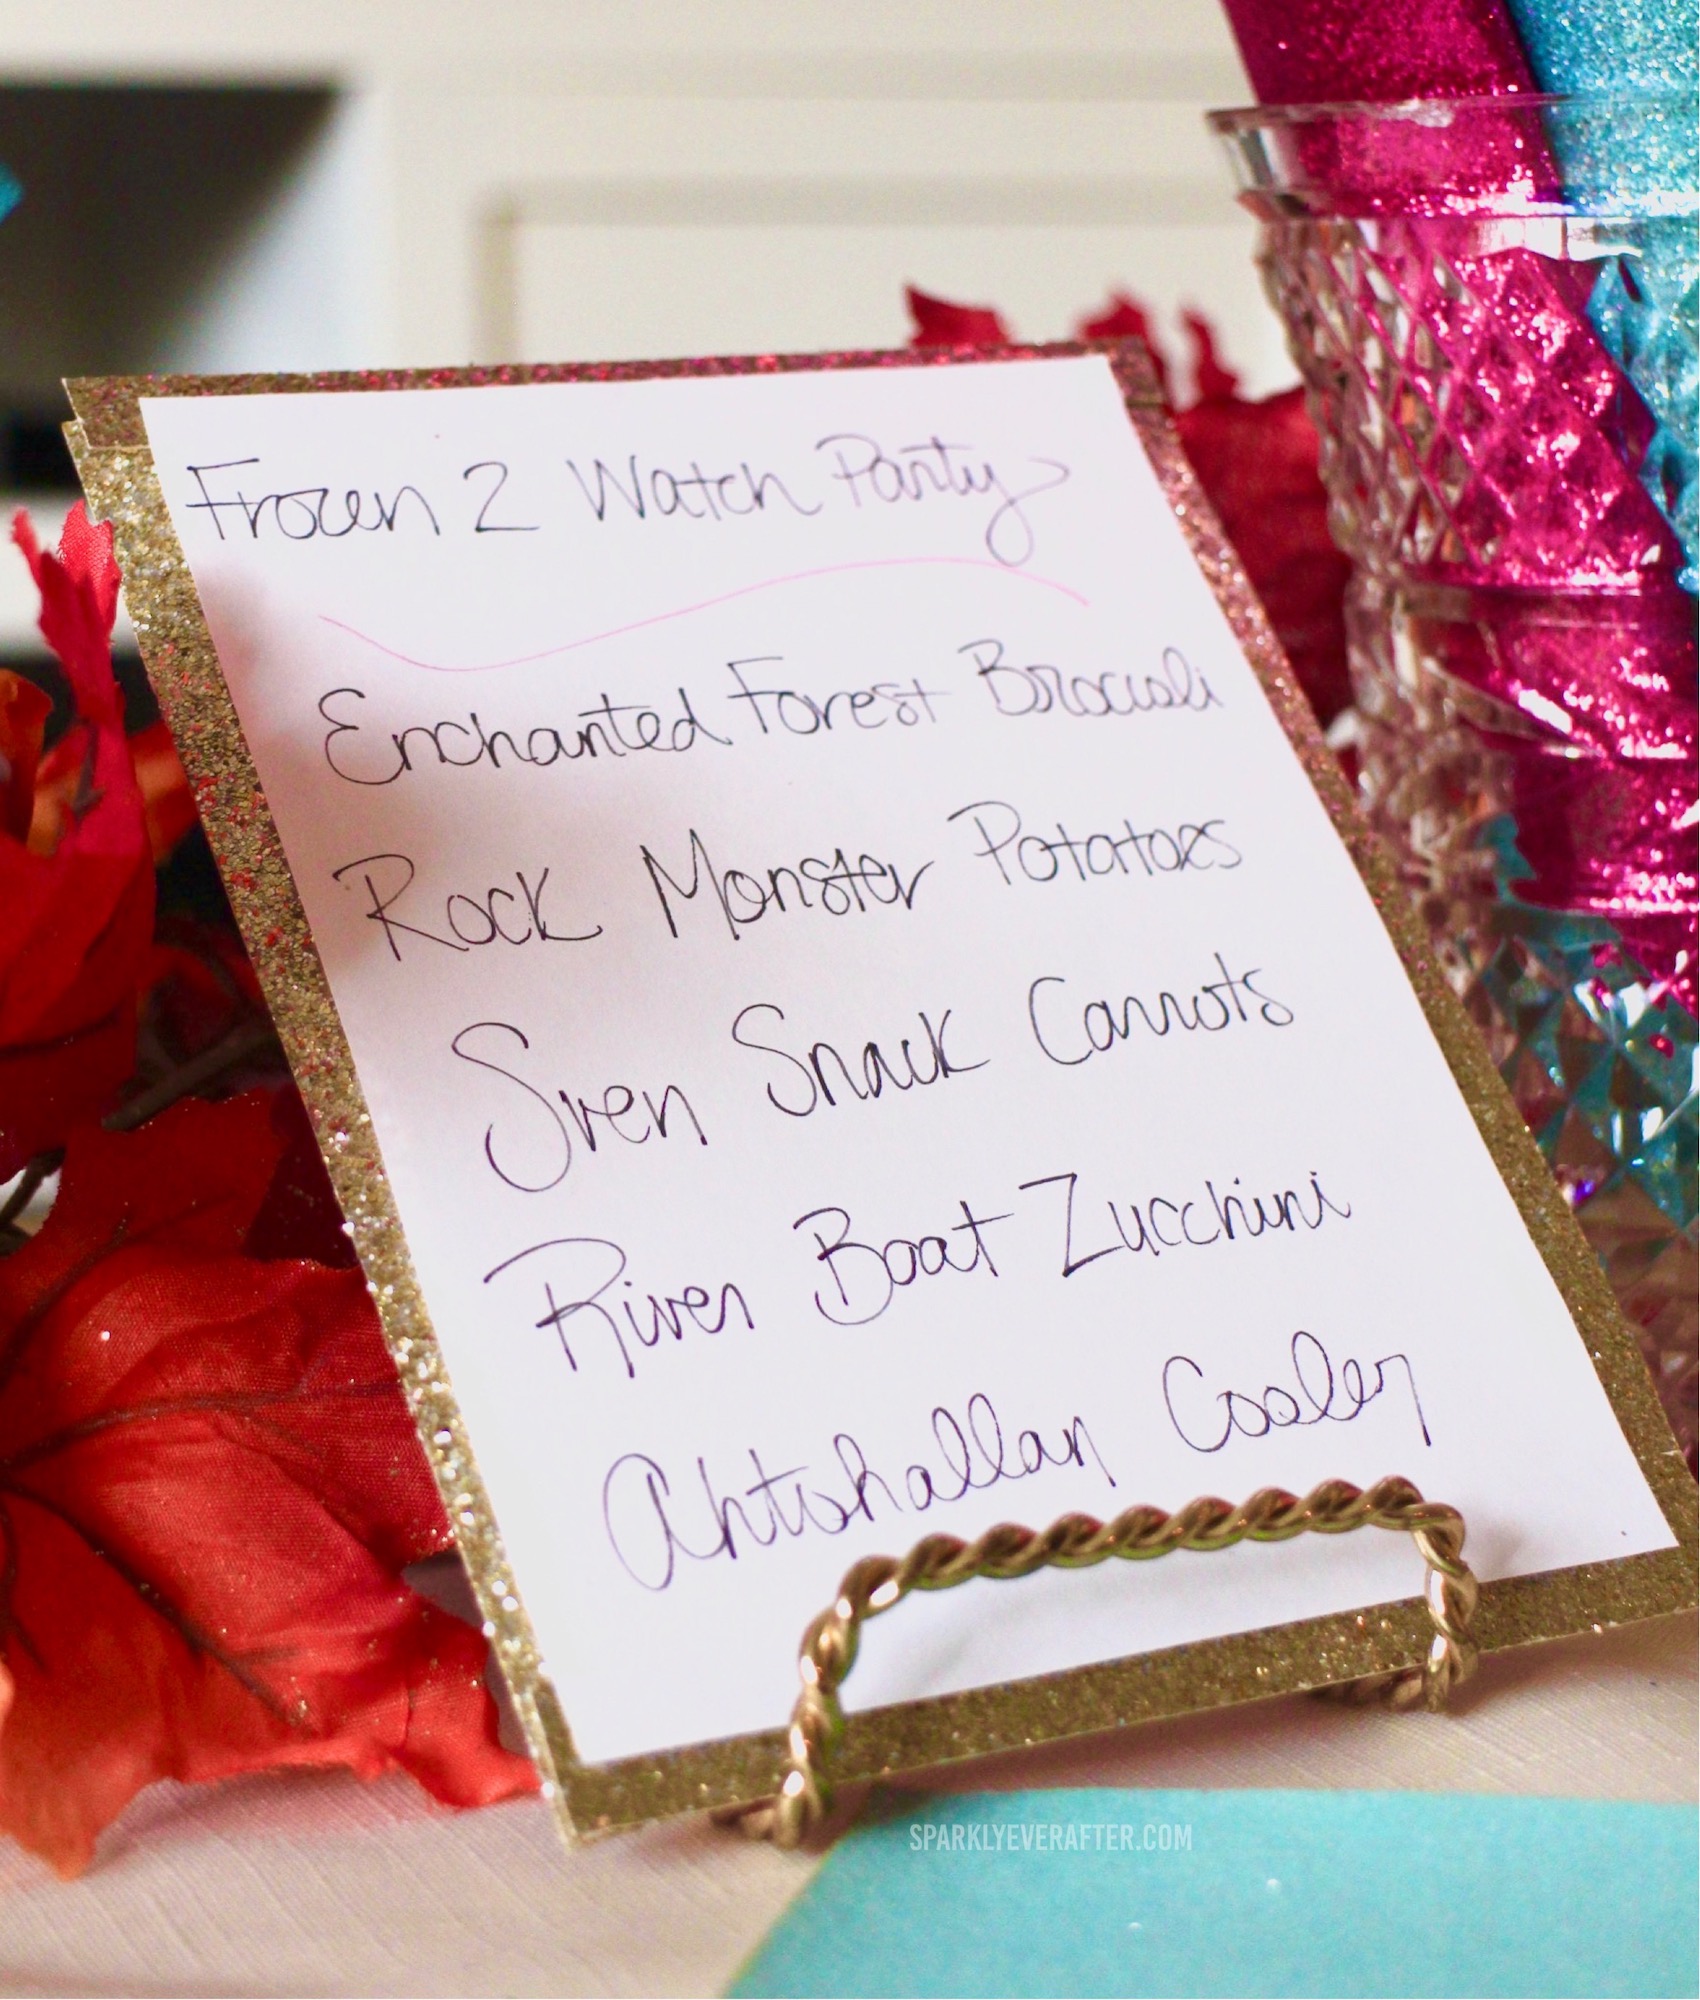 Frozen 2 Watch Party
Enchanted Forest Broccoli
Rock Monster Potatoes
Sven Snack Carrots
River Boat Zucchini
Ahtohallan Cooler
SPARKLYEVERAFTER.COM